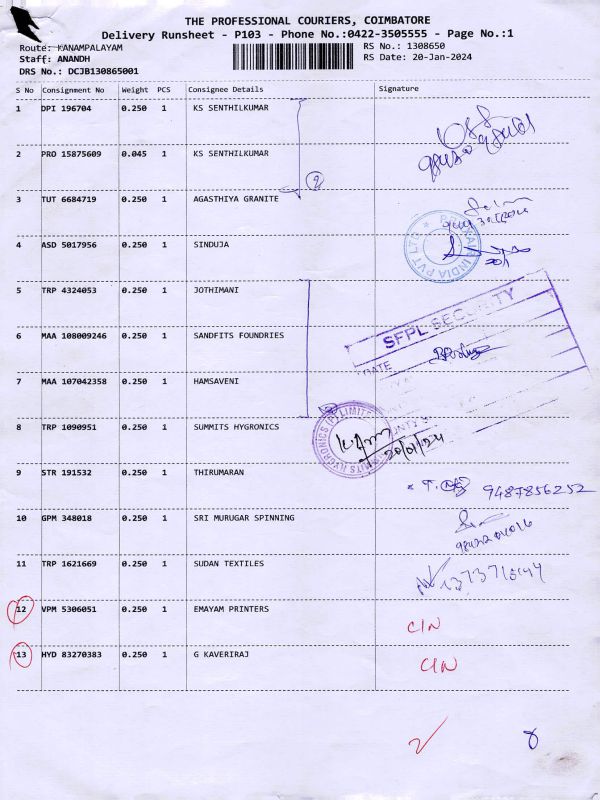 THE PROFESSIONAL COURIERS, COIMBATORE
Delivery Runsheet - P103 - Phone No.:0422-3505555 - Page No.:1
Route: KANAMPALAYAM
RS No.: 1308650
Staff: ANANDH
RS Date: 20-Jan-2024
DRS No.: DCJB130865001
S No Consignment No Weight PCS Consignee Details Signature
1 DPI 196704 0.250 1 KS SENTHILKUMAR
2 PRO 15875609 0.045 1 KS SENTHILKUMAR
2
3 TUT 6684719 0.250 1 AGASTHIYA GRANITE
4 ASD 5017956 0.250 1 SINDUJA
INDIA PVT LTD
5 TRP 4324053 0.250 1 JOTHIMANI
6 MAA 108009246 0.250 1 SANDFITS FOUNDRIES
SFPL SECURITY
DATE
7 MAA 107042358 0.250 1 HAMSAVENI
8 TRP 1090951 0.250 1 SUMMITS HYGRONICS
SUMMITS HYGRONICS (P) LIMITED
20/01/24
9 STR 191532 0.250 1 THIRUMARAN
9487856252
10 GPM 348018 0.250 1 SRI MURUGAR SPINNING
11 TRP 1621669 0.250 1 SUDAN TEXTILES
12 VPM 5306051 0.250 1 EMAYAM PRINTERS
C/N
13 HYD 83270383 0.250 1 G KAVERIRAJ
C/N
8